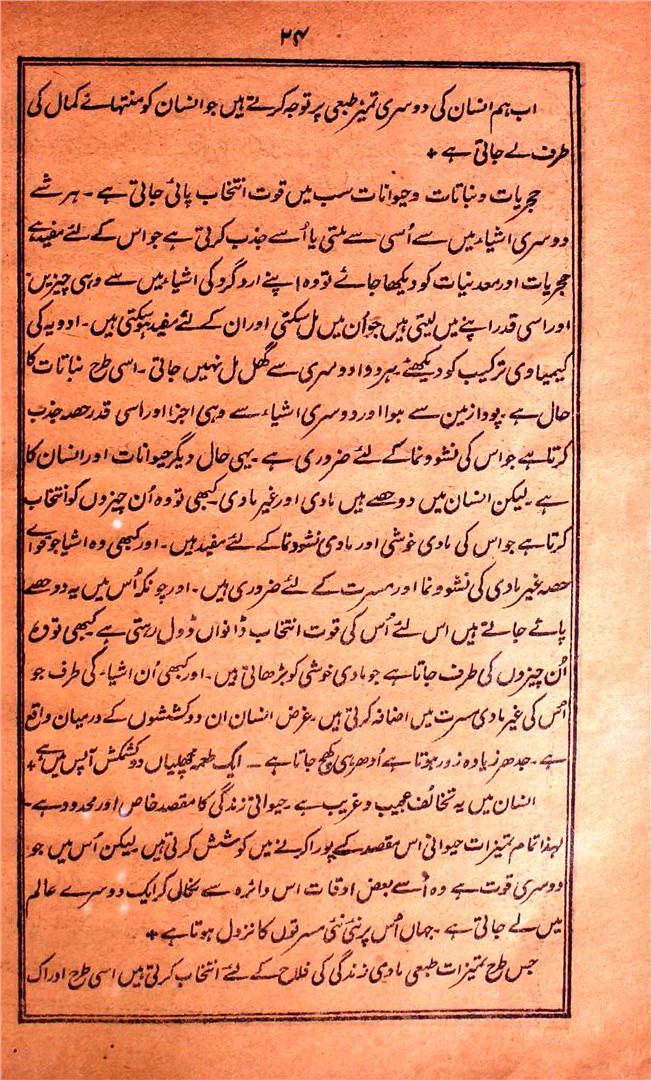 ۲۴
اب ہم انسان کی دوسری تمیز طبعی پر توجہ کرتے ہیں جو انسان کو منتہائے کمال کی
طرف لے جاتی ہے +
حجریات و نباتات و حیوانات سب میں قوت انتخاب پائی جاتی ہے ۔ ہر شے
دوسری اشیاء میں سے اُسی سے ملتی یا اُسے جذب کرتی ہے جو اس کے لئے مفید ہے
حجریات اور معدنیات کو دیکھا جائے تو وہ اپنے ارد گرد کی اشیاء میں سے وہی چیزیں
اور اسی قدر اپنے میں لیتی ہیں جو اُن میں مل سکتی اور ان کے لئے مفید ہو سکتی ہیں ۔ ادویہ کی
کیمیاوی ترکیب کو دیکھئے ہر دوا دوسری سے گھل مل نہیں جاتی ۔ اسی طرح نباتات کا
حال ہے ۔ پودا زمین سے ہوا اور دوسری اشیاء سے وہی اجزا اور اسی قدر حصہ جذب
کرتا ہے جو اس کی نشو و نما کے لئے ضروری ہے ۔ یہی حال دیگر حیوانات اور انسان کا
ہے ۔ لیکن انسان میں دو حصے ہیں مادی اور غیر مادی ۔ کبھی تو وہ اُن چیزوں کو انتخاب
کرتا ہے جو اس کی مادی خوشی اور مادی نشو و نما کے لئے مفید ہیں ۔ اور کبھی وہ اشیا جو
حصہ غیر مادی کی نشو و نما اور مسرت کے لئے ضروری ہیں ۔ اور چونکہ اُس میں یہ دو حصے
پائے جاتے ہیں اس لئے اُس کی قوت انتخاب ڈانواں ڈول رہتی ہے کبھی تو وہ
اُن چیزوں کی طرف جاتا ہے جو مادی خوشی کو بڑھاتی ہیں ۔ اور کبھی اُن اشیاء کی طرف جو
اُس کی غیر مادی مسرت میں اضافہ کرتی ہیں ۔ غرض انسان ان دو کششوں کے درمیان واقع
ہے ۔ جدھر زیادہ زور ہوتا ہے اُدھر ہی کھچ جاتا ہے ۔ ایک طعمہ مچھلیاں دو کشمکش آپس میں ہے +
انسان میں یہ تخالف عجیب و غریب ہے ۔ حیوانی زندگی کا مقصد خاص اور محدود ہے ۔
لہذا تمام تمیزات حیوانی اس مقصد کے پورا کرنے میں کوشش کرتی ہیں ۔ لیکن اُس میں جو
دوسری قوت ہے وہ اُسے بعض اوقات اس دائرہ سے نکال کر ایک دوسرے عالم
میں لے جاتی ہے ۔ جہاں اُس پر نئی نئی مسرتوں کا نزول ہوتا ہے +
جس طرح تمیزات طبعی مادی زندگی کی فلاح کے لئے انتخاب کرتی ہیں اسی طرح ادراک